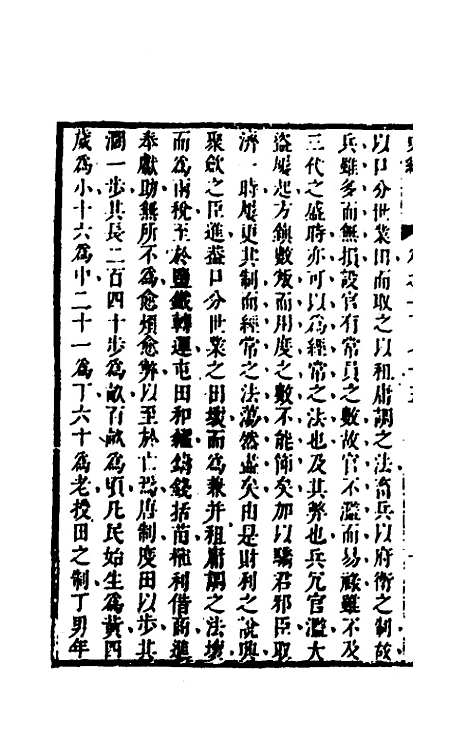 以口分世業田而取之以租庸調之法畜兵以府衛之制故
兵雖多而無損設官有常員之數故官不濫而易祿雖不及
三代之盛時亦可以為經常之法也及其弊也兵冗官濫大
盜屢起方鎮數叛而用度之數不能節矣加以驕君邪臣取
濟一時屢更其制而經常之法蕩然盡矣由是財利之說興
聚斂之臣進蓋口分世業之田壞而為兼并租庸調之法壞
而為兩稅至於鹽鐵轉運屯田和糴鑄錢括苗榷利借商進
奉獻助無所不為愈煩愈弊以至於亡焉唐制度田以步其
濶一步其長二百四十步為畝百畝為頃凡民始生為黃四
歲為小十六為中二十一為丁六十為老授田之制丁男年